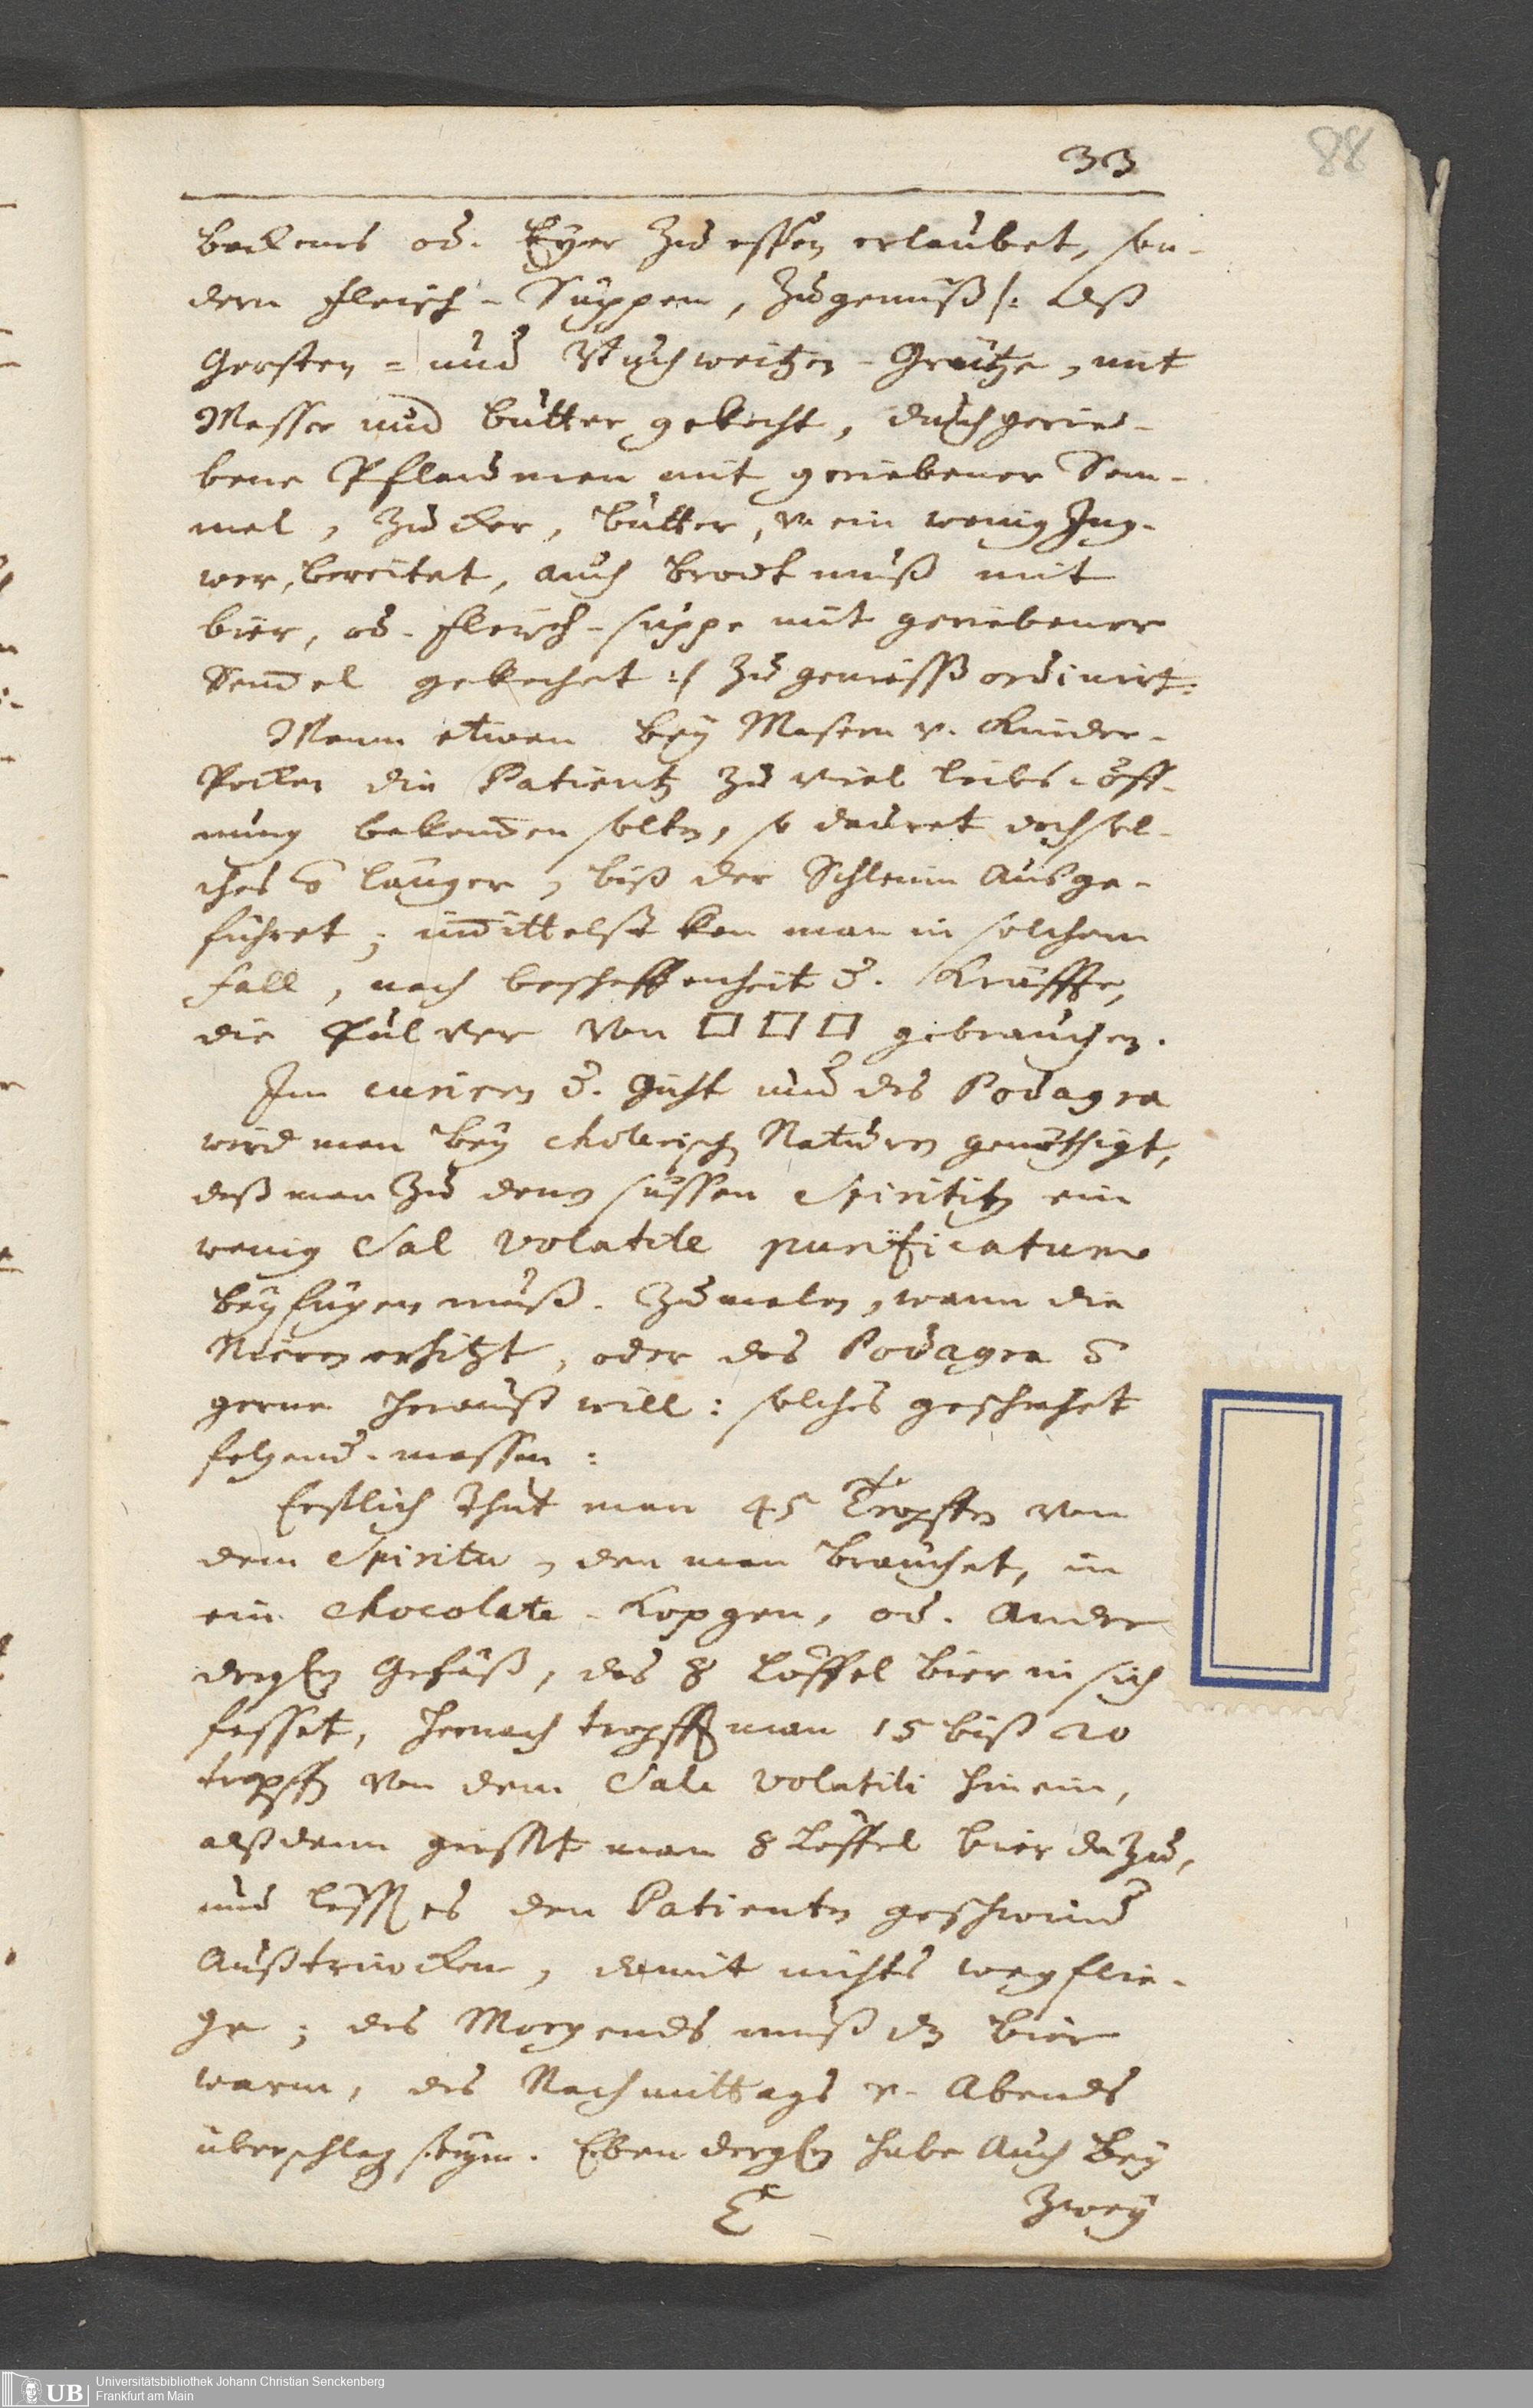 88
33
backens od. Eyer zu essen erlaubet, son-
dern Fleisch-Suppen, Zugemuß /: Alß
Gersten- und Buchweitzen-Grütze, mit
Wasser und butter gekocht, durchgerie-
bene Pflaumen mit geriebener Sem-
mel, Zucker, butter, v. ein wenig Ing-
wer, bereitet, auch brodtmuß mit
bier, od. Fleisch-suppe mit geriebener
Sem̅el gekochet :/ zu genieß ordinirt.
Wann etwan bey Masern v. Kinder-
Pocken die Patientẽ zu viel leibs-öff-
nung bekom̅en soltẽ, so dauret doch sol-
ches länger, biß der Schleim ausge-
führet; im̅ittelst kan man in solchem
fall, nach beschaffenheit d. Kräffte,
die Pulver von □ □ □ gebrauchen.
Im curiren d. Gicht und des Podagra
wird man bey cholerisch Naturen genöthigt,
daß man zu denen süssen Spiritib ein
wenig Sal volatile purificatum
beyfügen muß. Zumalen, wann die
Nieren erhitzt, oder das Podagra
gerne herauß will: solches geschiehet
folgend-massen:
Erstlich thut man 45 Tropffen von
dem Spiritu, den man brauchet, in
ein chocolate-Kopgen, od. ander
dergln Gefäß, das 8 Löffel bier in sich
fasset, hernach tropfft man 15 biß 20
tropffẽ von dem Sale volatili hinein,
alßdann giesst man 8 Löffel bier dazu,
und lässt es den Patienten geschwind
außtrincken, damit nichts wegflie-
ge; des Morgends muß dz bier
warm, des Nachmittags v. Abends
überschlag seyn. Eben dergln habe auch bey
E zwey
UB Universitätsbibliothek Johann Christian Senckenberg
Frankfurt am Main